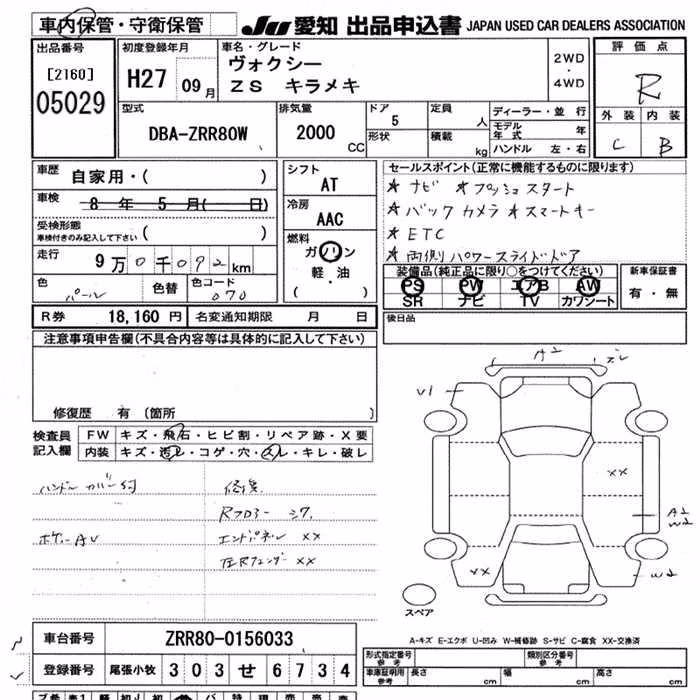 車内保管・守衛保管
JU 愛知 出品申込書 JAPAN USED CAR DEALERS ASSOCIATION
出品番号
[2160]
05029
初度登録年月
H27 09月
車名・グレード
ヴォクシー
ZS キラメキ
2WD
・
4WD
評価点
R
外装 内装
C B
型式
DBA-ZRR80W
排気量
2000 CC
ドア
5
形状
定員
人
積載
kg
ディーラー・並行
モデル年式 年
ハンドル 左・右
車歴
自家用・( )
車検
8 年 5 月( 日)
受検形態
車検付きのみ記入して下さい ( )
走行
9万0千092km
色
パール
色替
色コード
070
シフト
AT
冷房
AAC
燃料
ガソリン
軽・油
( )
セールスポイント(正常に機能するものに限ります)
★ ナビ ★プッシュスタート
★ バックカメラ ★スマートキー
★ ETC
★ 両側パワースライドドア
装備品(純正品に限り○をつけてください)
PS PW エアB AW
SR ナビ TV カワシート
新車保証書
有・無
R券 18,160 円 名変通知期限 月 日
後日品
注意事項申告欄(不具合内容等は具体的に記入して下さい)
修復歴 有 (箇所 )
検査員
記入欄
FW キズ・飛石・ヒビ割・リペア跡・X要
内装 キズ・汚レ・コゲ・穴・スレ・キレ・破レ
ハンドルカバー付
ボデーAU
修復
Rフロアー
エンドパネル XX
左Rフェンダー XX
A2
ズレ
U1
XX
A2
W2
XX
W2
スペア
A-キズ E-エクボ U-凹み W-補修跡 S-サビ C-腐食 XX-交換済
車台番号 ZRR80-0156033
登録番号 尾張小牧 303 せ 6734
形式指定番号
参考
類別区分番号
参考
車庫証明用
参考
長さ cm 幅 cm 高さ cm